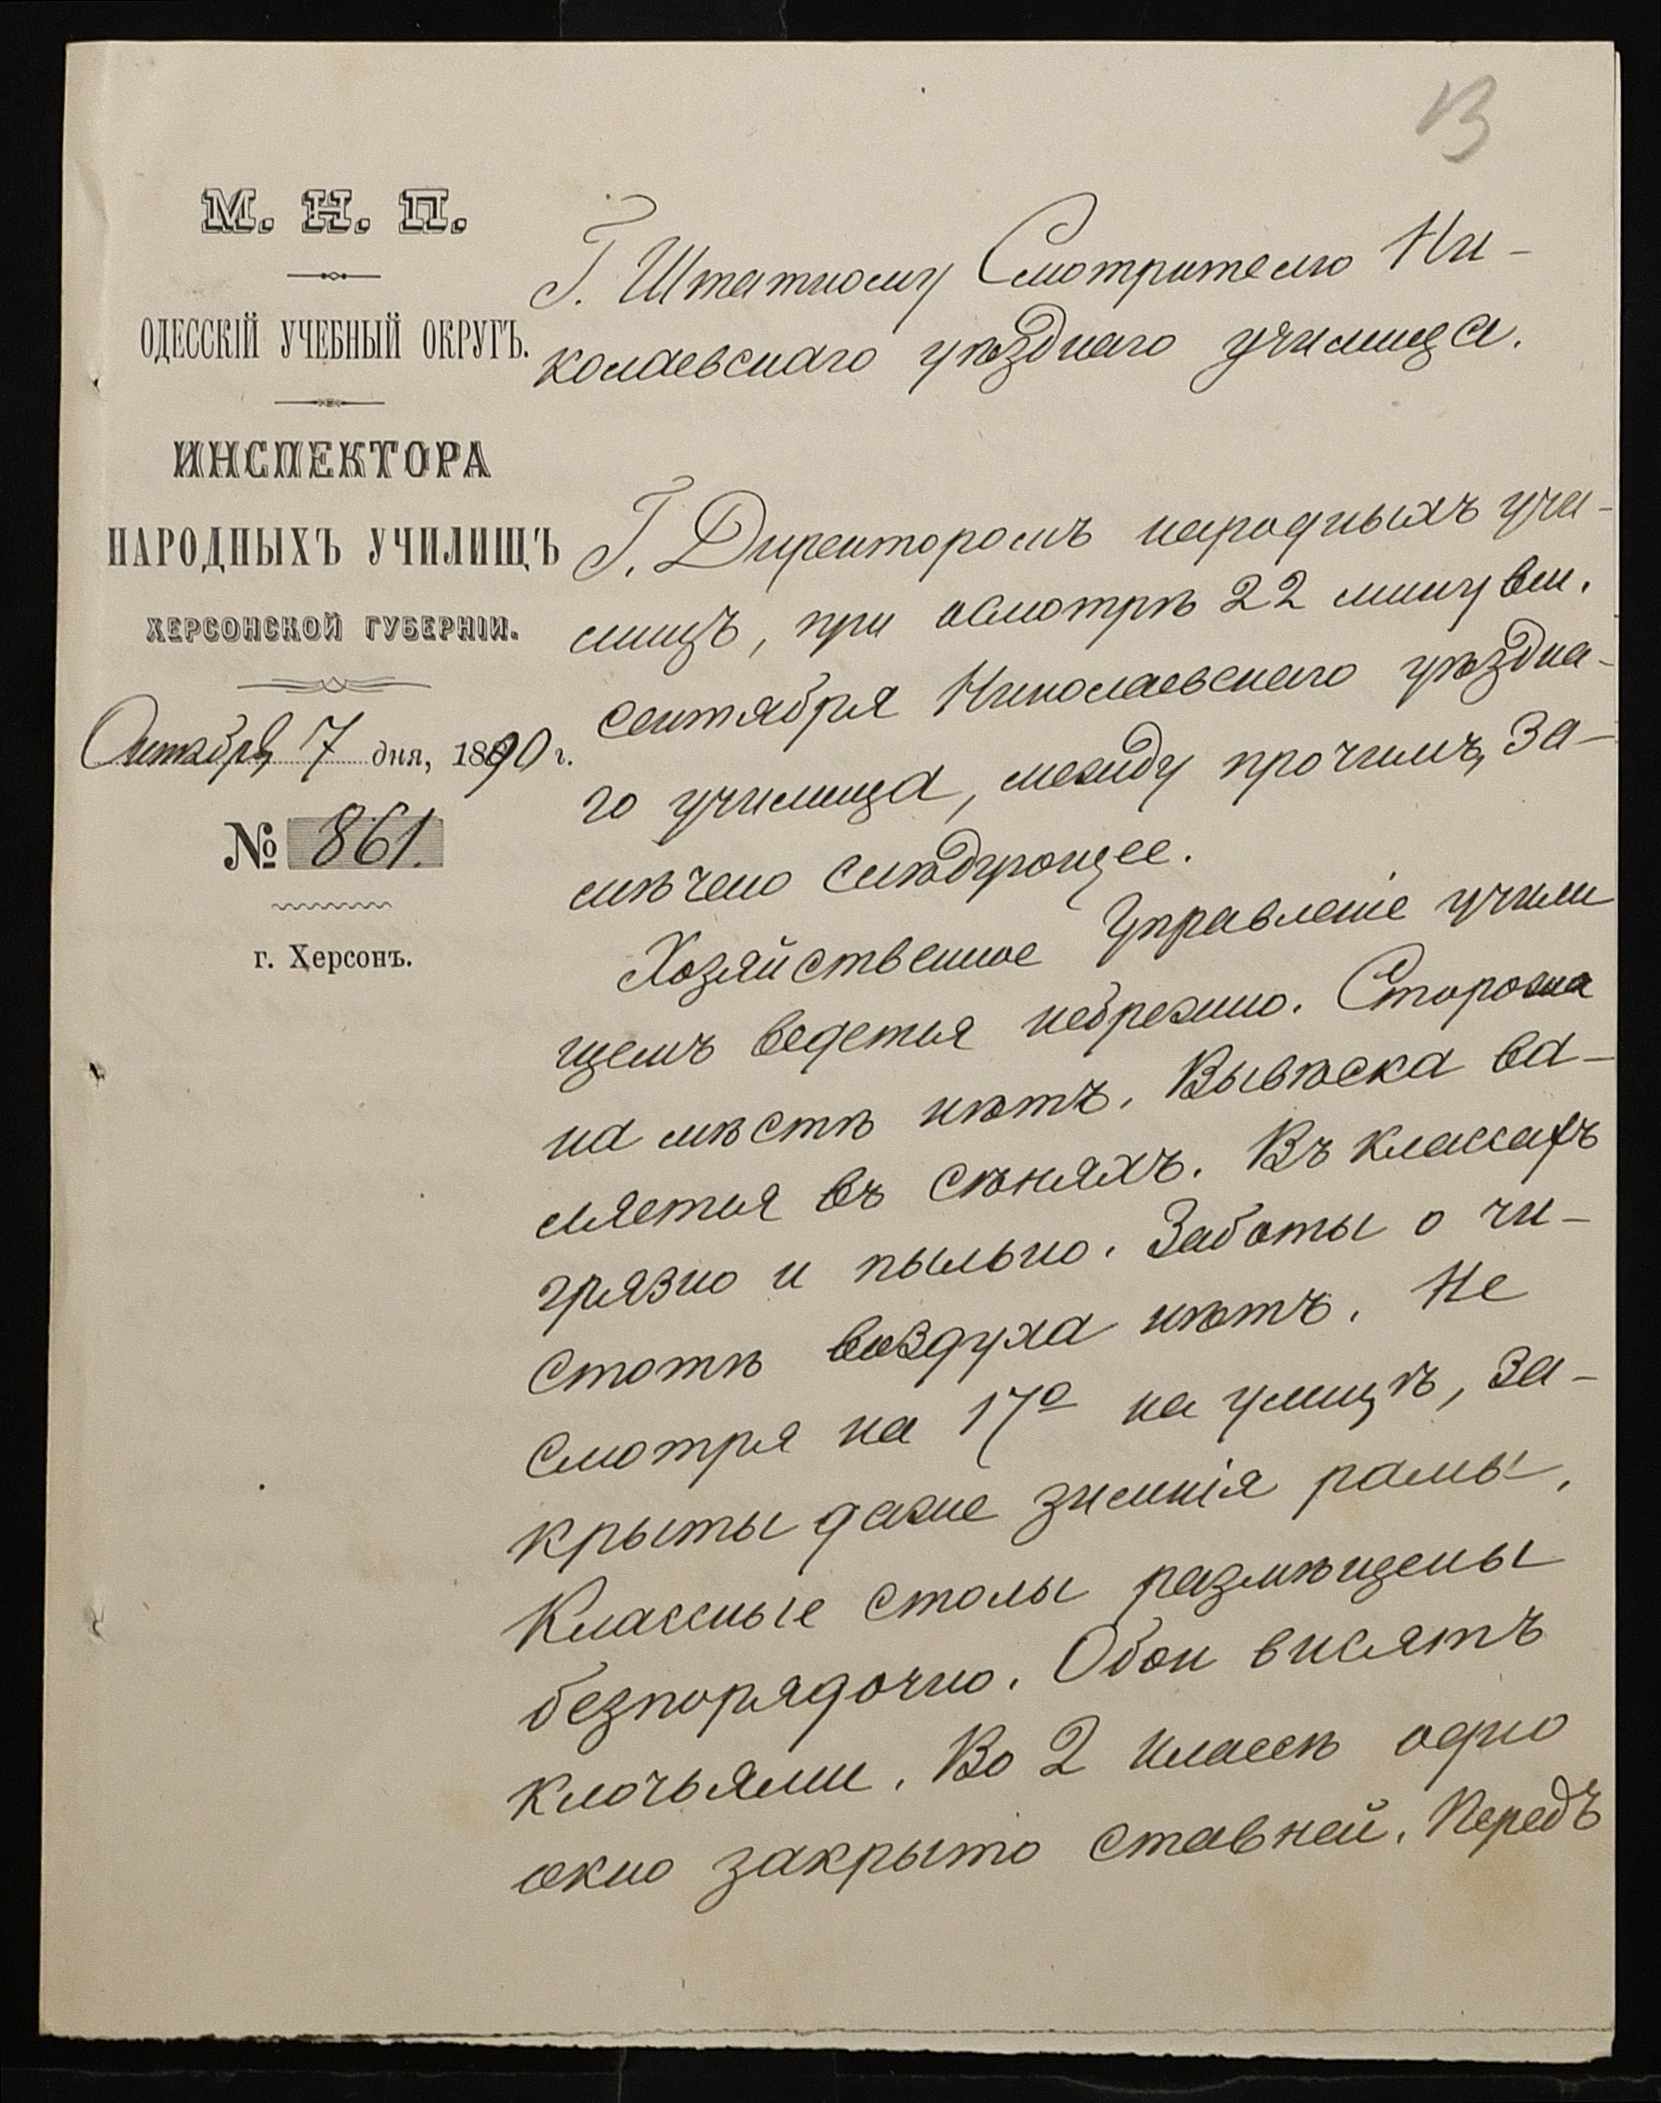 13
М. Н. П.
ОДЕССКІЙ УЧЕБНЫЙ ОКРУГЪ.
ИНСПЕКТОРА
НАРОДНЫХЪ УЧИЛИЩЪ
ХЕРСОНСКОЙ ГУБЕРНІИ.
Октября 7 дня, 1890 г.
№ 861.
г. Херсонъ.
Г. Штатному Смотрителю Ни-
колаевскаго уѣзднаго училища.
Г. Директоромъ народныхъ учи-
лищъ, при осмотрѣ 22 минувш.
сентября Николаевскаго уѣздна-
го училища, между прочимъ, за-
мѣчено слѣдующее.
Хозяйственное Управленіе учили
щемъ ведется небрежно. Сторожа
на мѣстѣ нѣтъ. Вывѣска ва-
ляется въ сѣняхъ. Въ классахъ
грязно и пыльно. Заботы о чи-
стотѣ воздуха нѣтъ. Не
смотря на 17° на улицѣ, за-
крыты даже зимнія рамы.
Классные столы размѣщены
безпорядочно. Обои висятъ
клочьями. Во 2 классѣ одно
окно закрыто ставней. Передъ